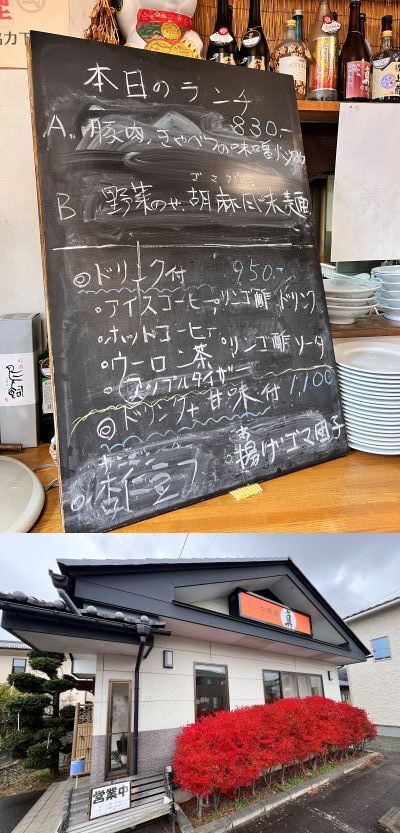 本日のランチ
A. 豚肉、きゃべつの味噌炒め
830-
ごまふうみ
B 野菜のせ、胡麻風味麺
◎ドリンク付 950-
○アイスコーヒー
リンゴ酢 ドリンク
○ホットコーヒー
○ウーロン茶
○リンゴ酢 ソーダ
○アップルタイザー
◎ドリンク+甘味付 1,100
○杏仁豆フ
○揚げゴマ団子
営業中